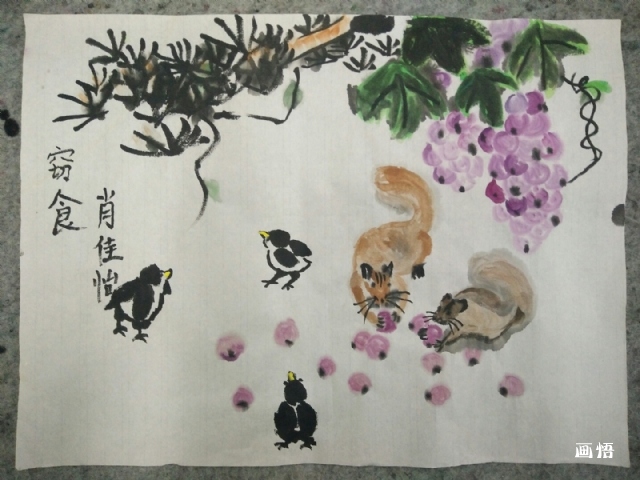 窃食
肖佳怡
画悟